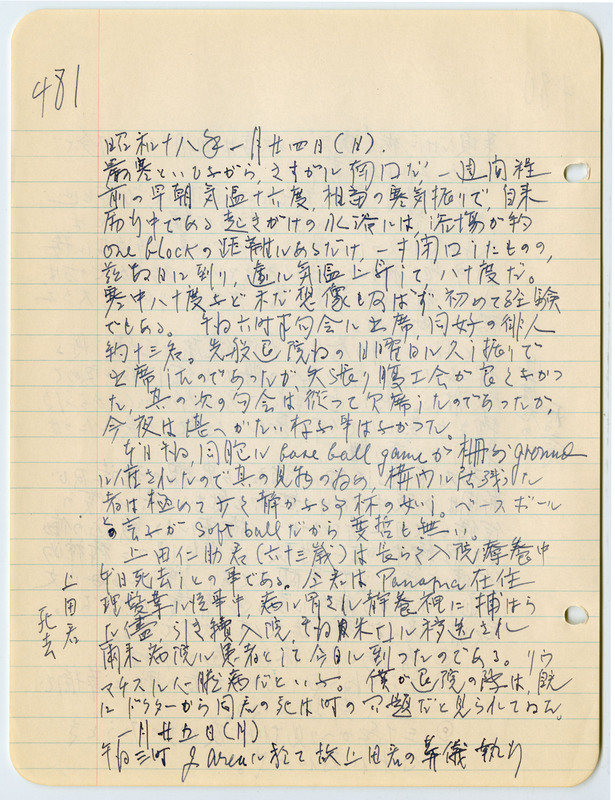 481
昭和十八年一月廿四日(月).
最寒といひながら、さすがに 南口だ 一週間程
前の早朝気温十六度、相当の寒気振りで、自来
励行中である 起きがけの水浴には、浴場が約
one blockの距離にあるだけ、一寸閉口したものの、
茲数日に到り、遽に気温上昇して 八十度だ。
寒中八十度など 未だ想像も及ばず、初めて経験
である。 午后六時半句会に出席、同好の俳人
約十三名。先般退院后の日曜日久し振りで
出席したのであったが、矢張り腹工合が良くなかつ
た、其の次の句会は従つて欠席したのであつたが、
今夜は堪へがたい様子半はなかつた。
本日午后同胞に base ball gameが柵外ground
に催されたので其の見物の為め、構内に居残つた
者は極めて少く静かなる事林の如し。ベースボール
と言ふが soft ballだから 変哲も無い。
上田仁助君(六十三歳)は長らく入院療養中
本日死去しとの事である。 仝君は Panama 在住
理髪業に従事中、病に冒され静養裡に捕はら
れ儘、引き続入院、午后 米本土に移送され
爾来病院に患者として今日に到つたのである。リウ
マチスに心臓病だといふ。 僕が退院の際は、既
に ドクターから同君の死は時の問題だと見られてゐた。
上田君
死去
一月廿五日(火)
午后三時 J areaに於て故上田君の葬儀執行